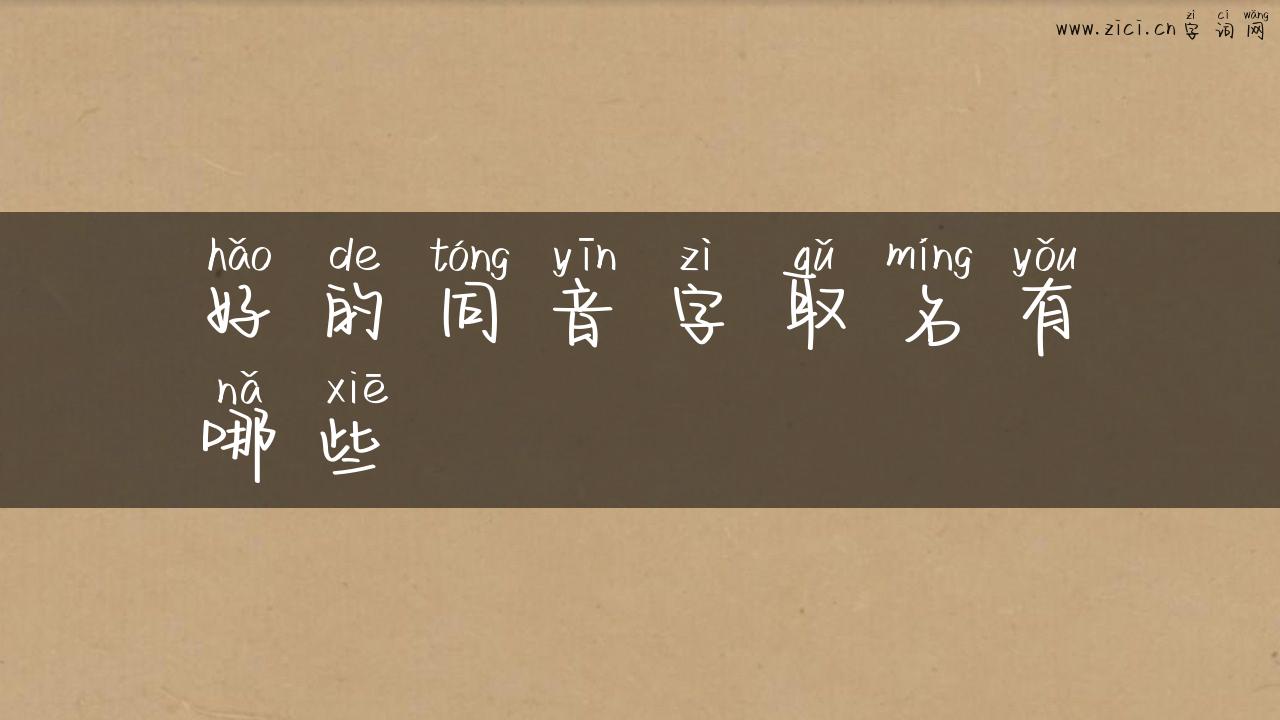 zì cí wǎng
www.zici.cn 字 词 网
hǎo de tóng yīn zì qǔ míng yǒu
好 的 同 音 字 取 名 有
nǎ xiē
哪 些